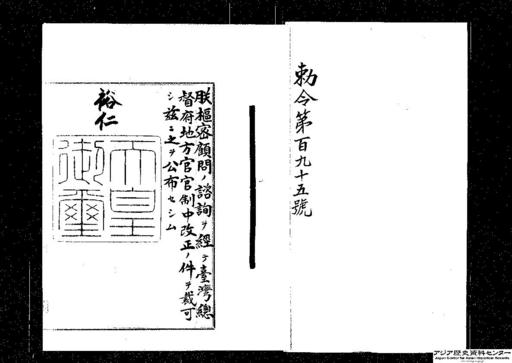 勅令第百九十五號
朕樞密顧問ノ諮詢ヲ經テ臺灣總
督府地方官官制中改正ノ件ヲ裁可
シ茲ニ之ヲ公布セシム
裕仁
天皇
御璽
アジア歴史資料センター
Japan Center for Asian Historical Records